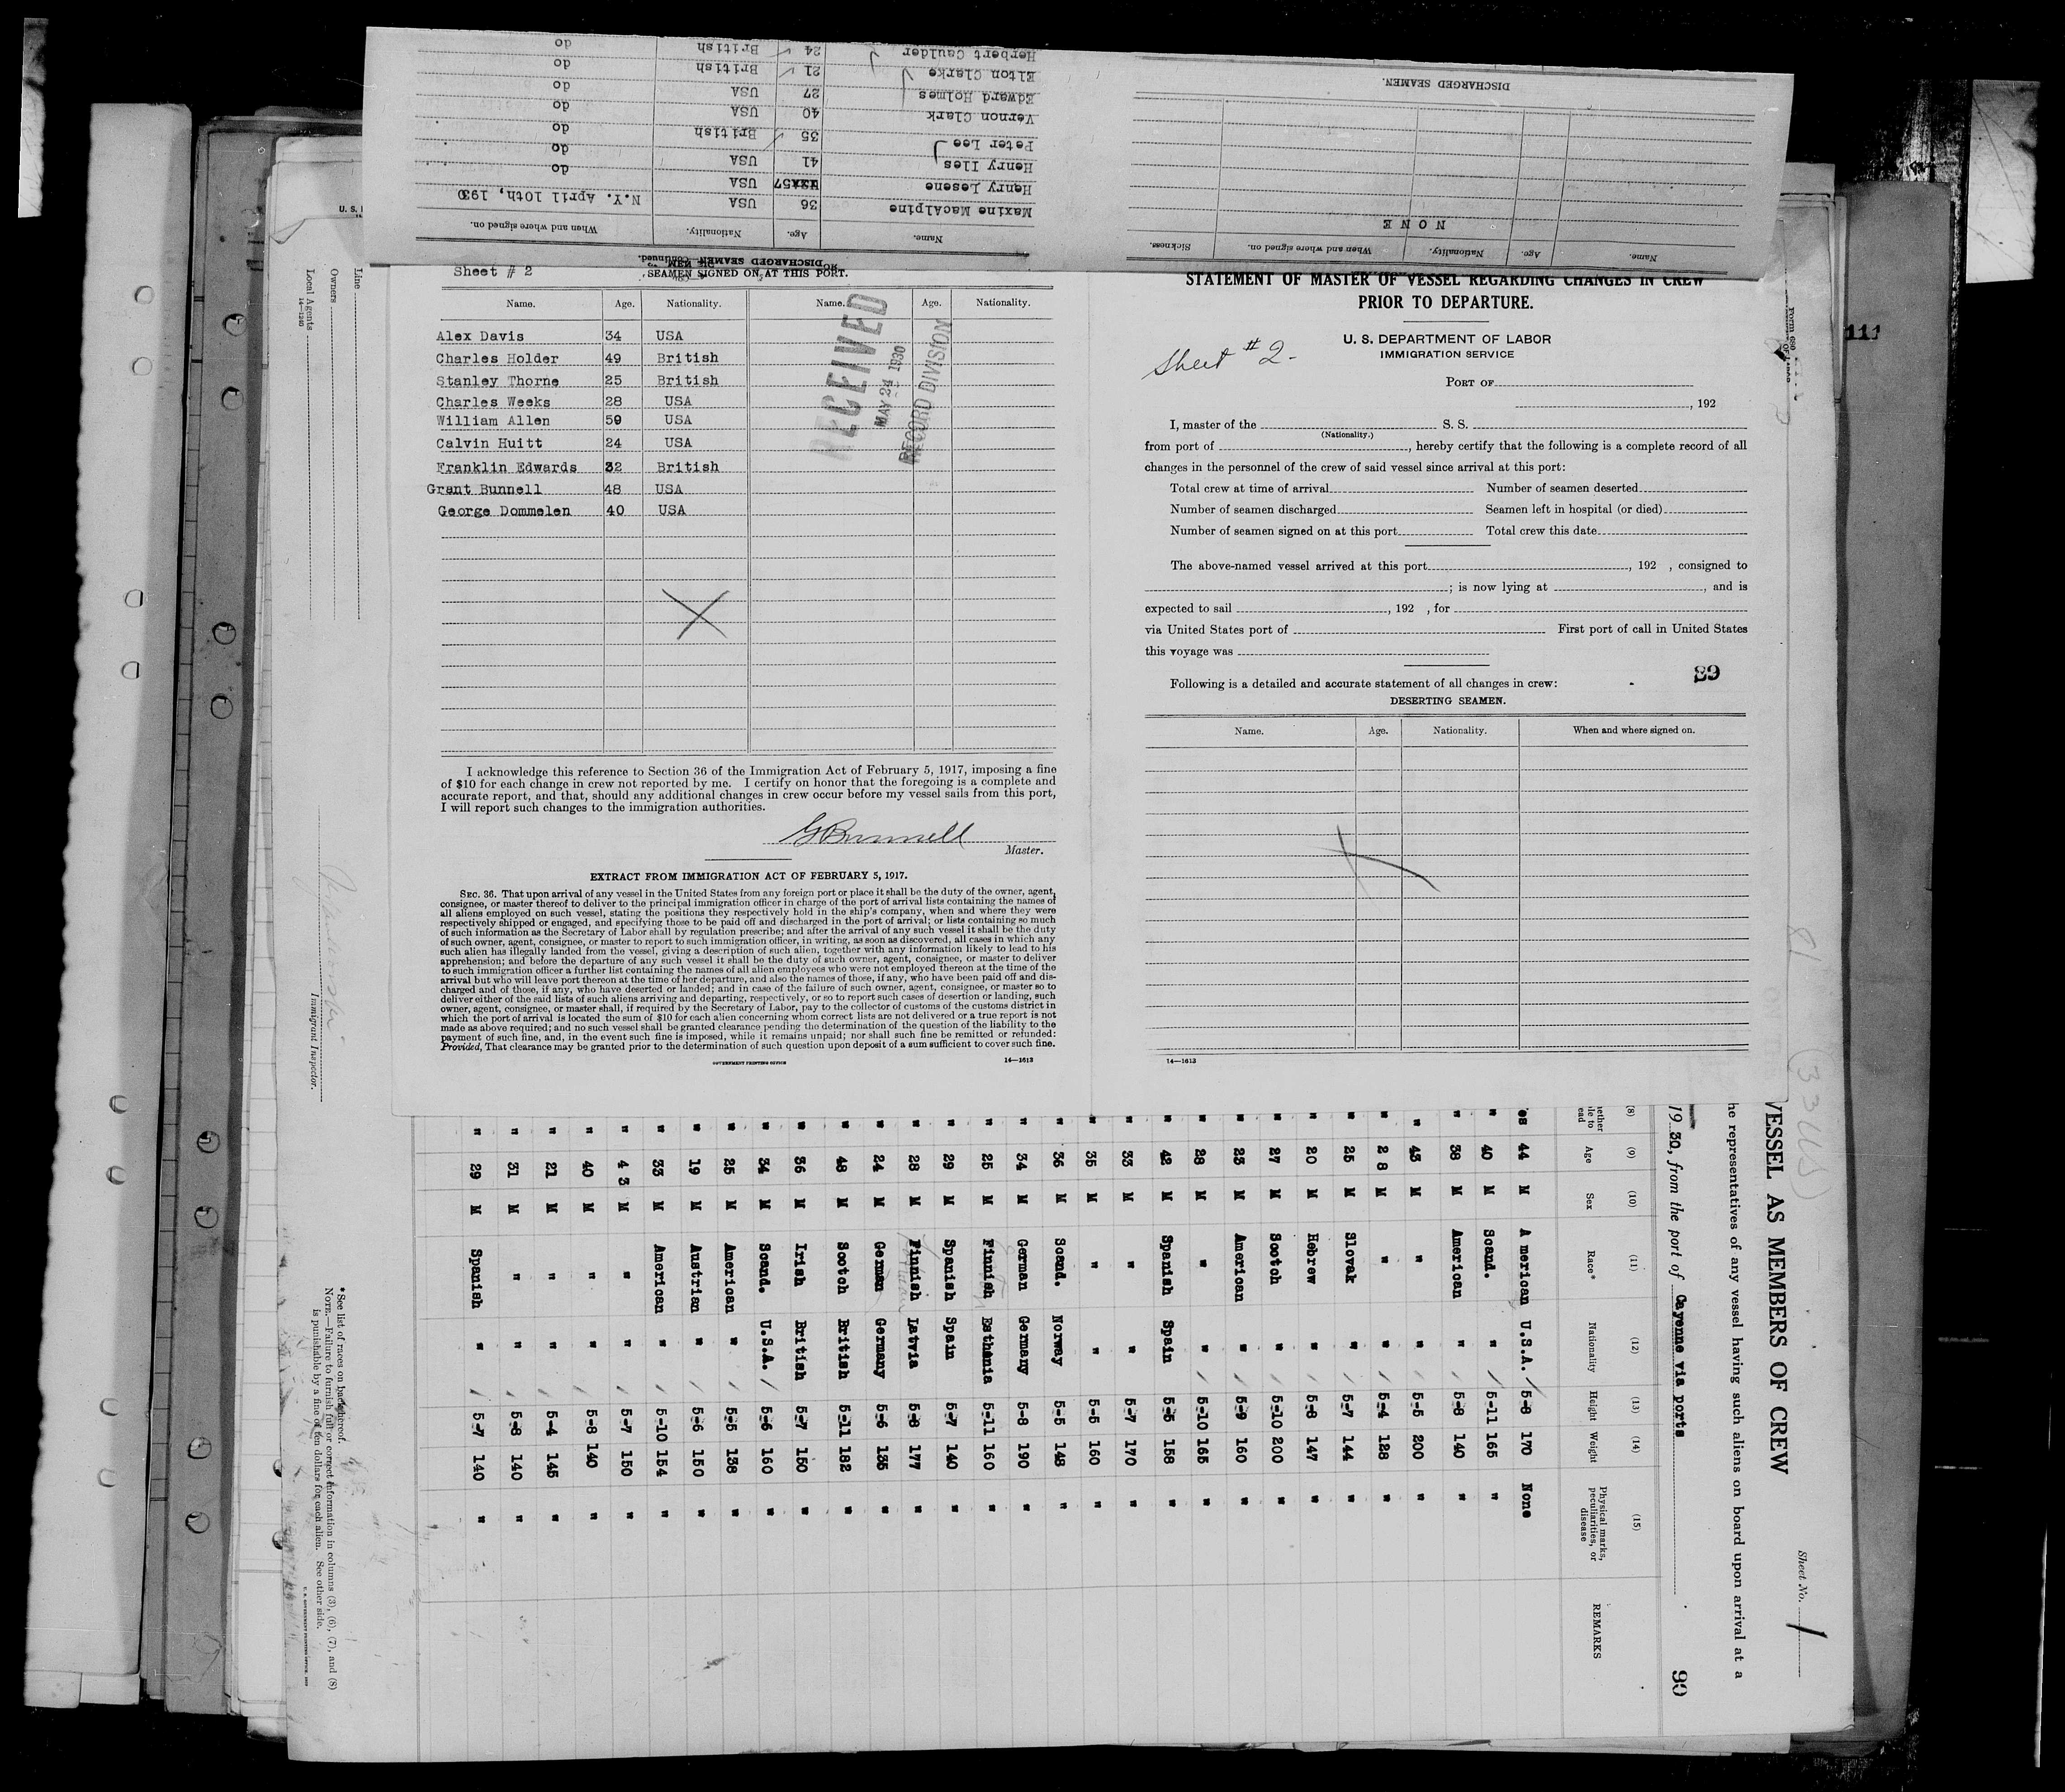 DISCHARGED SEAMEN. Continued.
Name. Age. Nationality. When and where signed on.
Maxine MacAlpine 36 USA N.Y. April 10th, 193
Henry Lesene 57 USA
Henry Iles 41 USA do
Peter Lee 35 British do
Vernon Clark 40 USA do
Edward Holmes 27 USA do
Elton Clarke 21 British do
Herbert Caulder 24 British do
Name. Age. Nationality. When and where signed on. Sickness.
N O N E
DISCHARGED SEAMEN.
Sheet # 2
SEAMEN SIGNED ON AT THIS PORT.
Name. Age. Nationality. Name. Age. Nationality.
Alex Davis 34 USA
Charles Holder 49 British
Stanley Thorne 25 British
Charles Weeks 28 USA
William Allen 59 USA
Calvin Huitt 24 USA
Franklin Edwards 32 British
Grant Bunnell 48 USA
George Dommelen 40 USA
RECEIVED
MAY 24 1930
RECORD DIVISION
I acknowledge this reference to Section 36 of the Immigration Act of February 5, 1917, imposing a fine
of $10 for each change in crew not reported by me. I certify on honor that the foregoing is a complete and
accurate report, and that, should any additional changes in crew occur before my vessel sails from this port,
I will report such changes to the immigration authorities.
G Bunnell
Master.
EXTRACT FROM IMMIGRATION ACT OF FEBRUARY 5, 1917.
SEC. 36. That upon arrival of any vessel in the United States from any foreign port or place it shall be the duty of the owner, agent,
consignee, or master thereof to deliver to the principal immigration officer in charge of the port of arrival lists containing the names of
all aliens employed on such vessel, stating the positions they respectively hold in the ship's company, when and where they were
respectively shipped or engaged, and specifying those to be paid off and discharged in the port of arrival; or lists containing so much
of such information as the Secretary of Labor shall by regulation prescribe; and after the arrival of any such vessel it shall be the duty
of such owner, agent, consignee, or master to report to such immigration officer, in writing, as soon as discovered, all cases in which any
such alien has illegally landed from the vessel, giving a description of such alien, together with any information likely to lead to his
apprehension; and before the departure of any such vessel it shall be the duty of such owner, agent, consignee, or master to deliver
to such immigration officer a further list containing the names of all alien employees who were not employed thereon at the time of the
arrival but who will leave port thereon at the time of her departure, and also the names of those, if any, who have been paid off and dis-
charged and of those, if any, who have deserted or landed; and in case of the failure of such owner, agent, consignee, or master so to
deliver either of the said lists of such aliens arriving and departing, respectively, or so to report such cases of desertion or landing, such
owner, agent, consignee, or master shall, if required by the Secretary of Labor, pay to the collector of customs of the customs district in
which the port of arrival is located the sum of $10 for each alien concerning whom correct lists are not delivered or a true report is not
made as above required; and no such vessel shall be granted clearance pending the determination of the question of the liability to the
payment of such fine, and, in the event such fine is imposed, while it remains unpaid; nor shall such fine be remitted or refunded:
Provided, That clearance may be granted prior to the determination of such question upon deposit of a sum sufficient to cover such fine.
GOVERNMENT PRINTING OFFICE 14—1613
STATEMENT OF MASTER OF VESSEL REGARDING CHANGES IN CREW
PRIOR TO DEPARTURE.
U. S. DEPARTMENT OF LABOR
IMMIGRATION SERVICE
Sheet #2-
PORT OF
, 192
I, master of the S. S.
(Nationality.)
from port of , hereby certify that the following is a complete record of all
changes in the personnel of the crew of said vessel since arrival at this port:
Total crew at time of arrival Number of seamen deserted
Number of seamen discharged Seamen left in hospital (or died)
Number of seamen signed on at this port Total crew this date
The above-named vessel arrived at this port , 192 , consigned to
; is now lying at , and is
expected to sail , 192 , for
via United States port of First port of call in United States
this voyage was
89
Following is a detailed and accurate statement of all changes in crew:
DESERTING SEAMEN.
Name. Age. Nationality. When and where signed on.
14—1613
Form 680
111
U. S.
Line
Owners
Local Agents
14—1240
Immigrant Inspector.
*See list of races on back hereof.
NOTE.—Failure to furnish full or correct information in columns (3), (6), (7), and (8)
is punishable by a fine of ten dollars for each alien. See other side.
Sheet No. 1
VESSEL AS MEMBERS OF CREW
he representatives of any vessel having such aliens on board upon arrival at a
19 30, from the port of Cayenne via ports
99
(8) (9) (10) (11) (12) (13) (14) (15)
Age Sex Race* Nationality Height Weight Physical marks, peculiarities, or disease REMARKS
es 44 M American U.S.A. 5-8 170 None
" 40 M Scand. " 5-11 165 "
" 38 M American " 5-8 140 "
" 43 M " " 5-5 200 "
" 28 M " " 5-4 128 "
" 25 M Slovak " 5-7 144 "
" 20 M Hebrew " 5-8 147 "
" 27 M Scotch " 5-10 200 "
" 23 M American " 5-9 160 "
" 28 M " " 5-10 165 "
" 42 M Spanish Spain 5-5 158 "
" 33 M " " 5-7 170 "
" 35 M " " 5-5 160 "
" 36 M Scand. Norway 5-5 148 "
" 34 M German Germany 5-8 190 "
" 25 M Finnish Esthonia 5-11 160 "
" 29 M Spanish Spain 5-7 140 "
" 28 M Finnish Latvia 5-8 177 "
" 24 M German Germany 5-6 135 "
" 48 M Scotch British 5-11 182 "
" 36 M Irish British 5-7 150 "
" 34 M Scand. U.S.A. 5-6 160 "
" 25 M American " 5-5 138 "
" 19 M Austrian " 5-6 150 "
" 33 M American " 5-10 154 "
" 43 M " " 5-7 150 "
" 40 M " " 5-8 140 "
" 21 M " " 5-4 145 "
" 31 M " " 5-8 140 "
" 29 M Spanish " 5-7 140 "